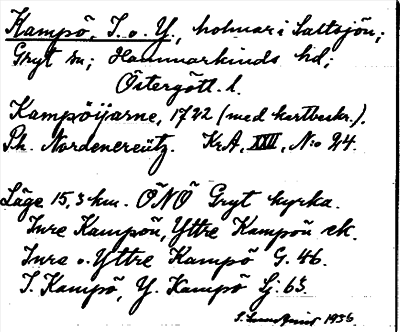 Kampö, I. o. Y., holmar i Saltsjön;
Gryt sn; Hammarkinds hd;
Östergötl. l.
Kampöijarne, 1722 (med kartbeskr.).
Ph. Nordencreütz. KrA, XXII, N:o 24.
Läge 15,3 km. ONO Gryt kyrka.
Inre Kampön, Yttre Kampön ek.
Inra o. Yttre Kampö G. 46.
I. Kampö, Y. Kampö Sj. 63.
1936